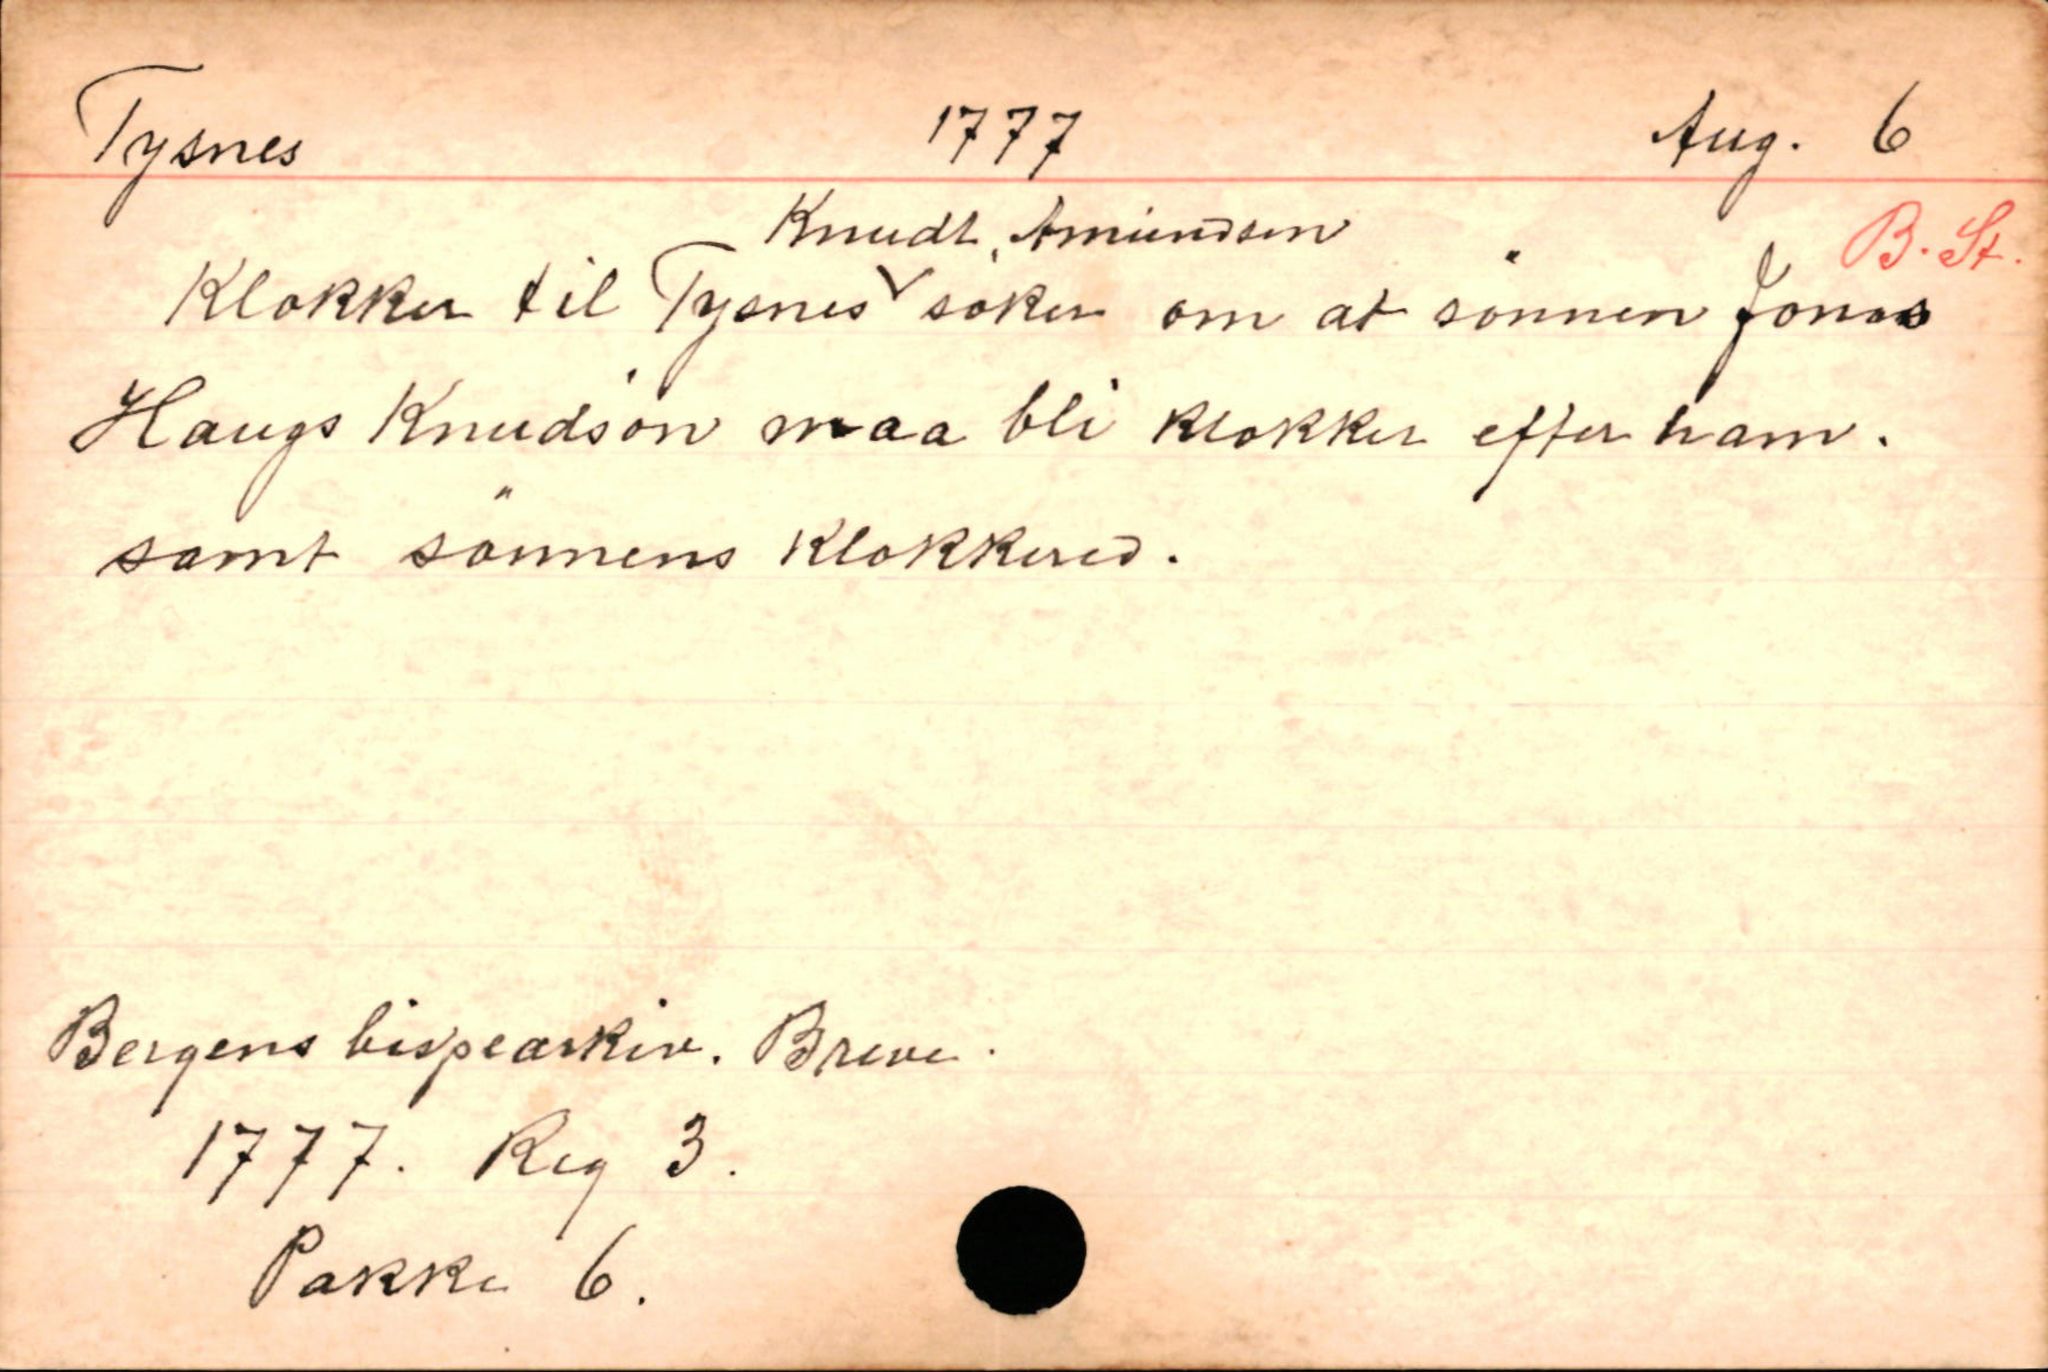 Tysnes 1777 Aug. 6
B. St.
Knudt Amundsen
Klokker til Tysnes søker om at sønnen Jonas
Haugs Knudsøn maa bli klokker efter ham.
samt sønnens klokkered.
Bergens bispearkiv. Breve.
1777. Reg 3.
Pakke 6.